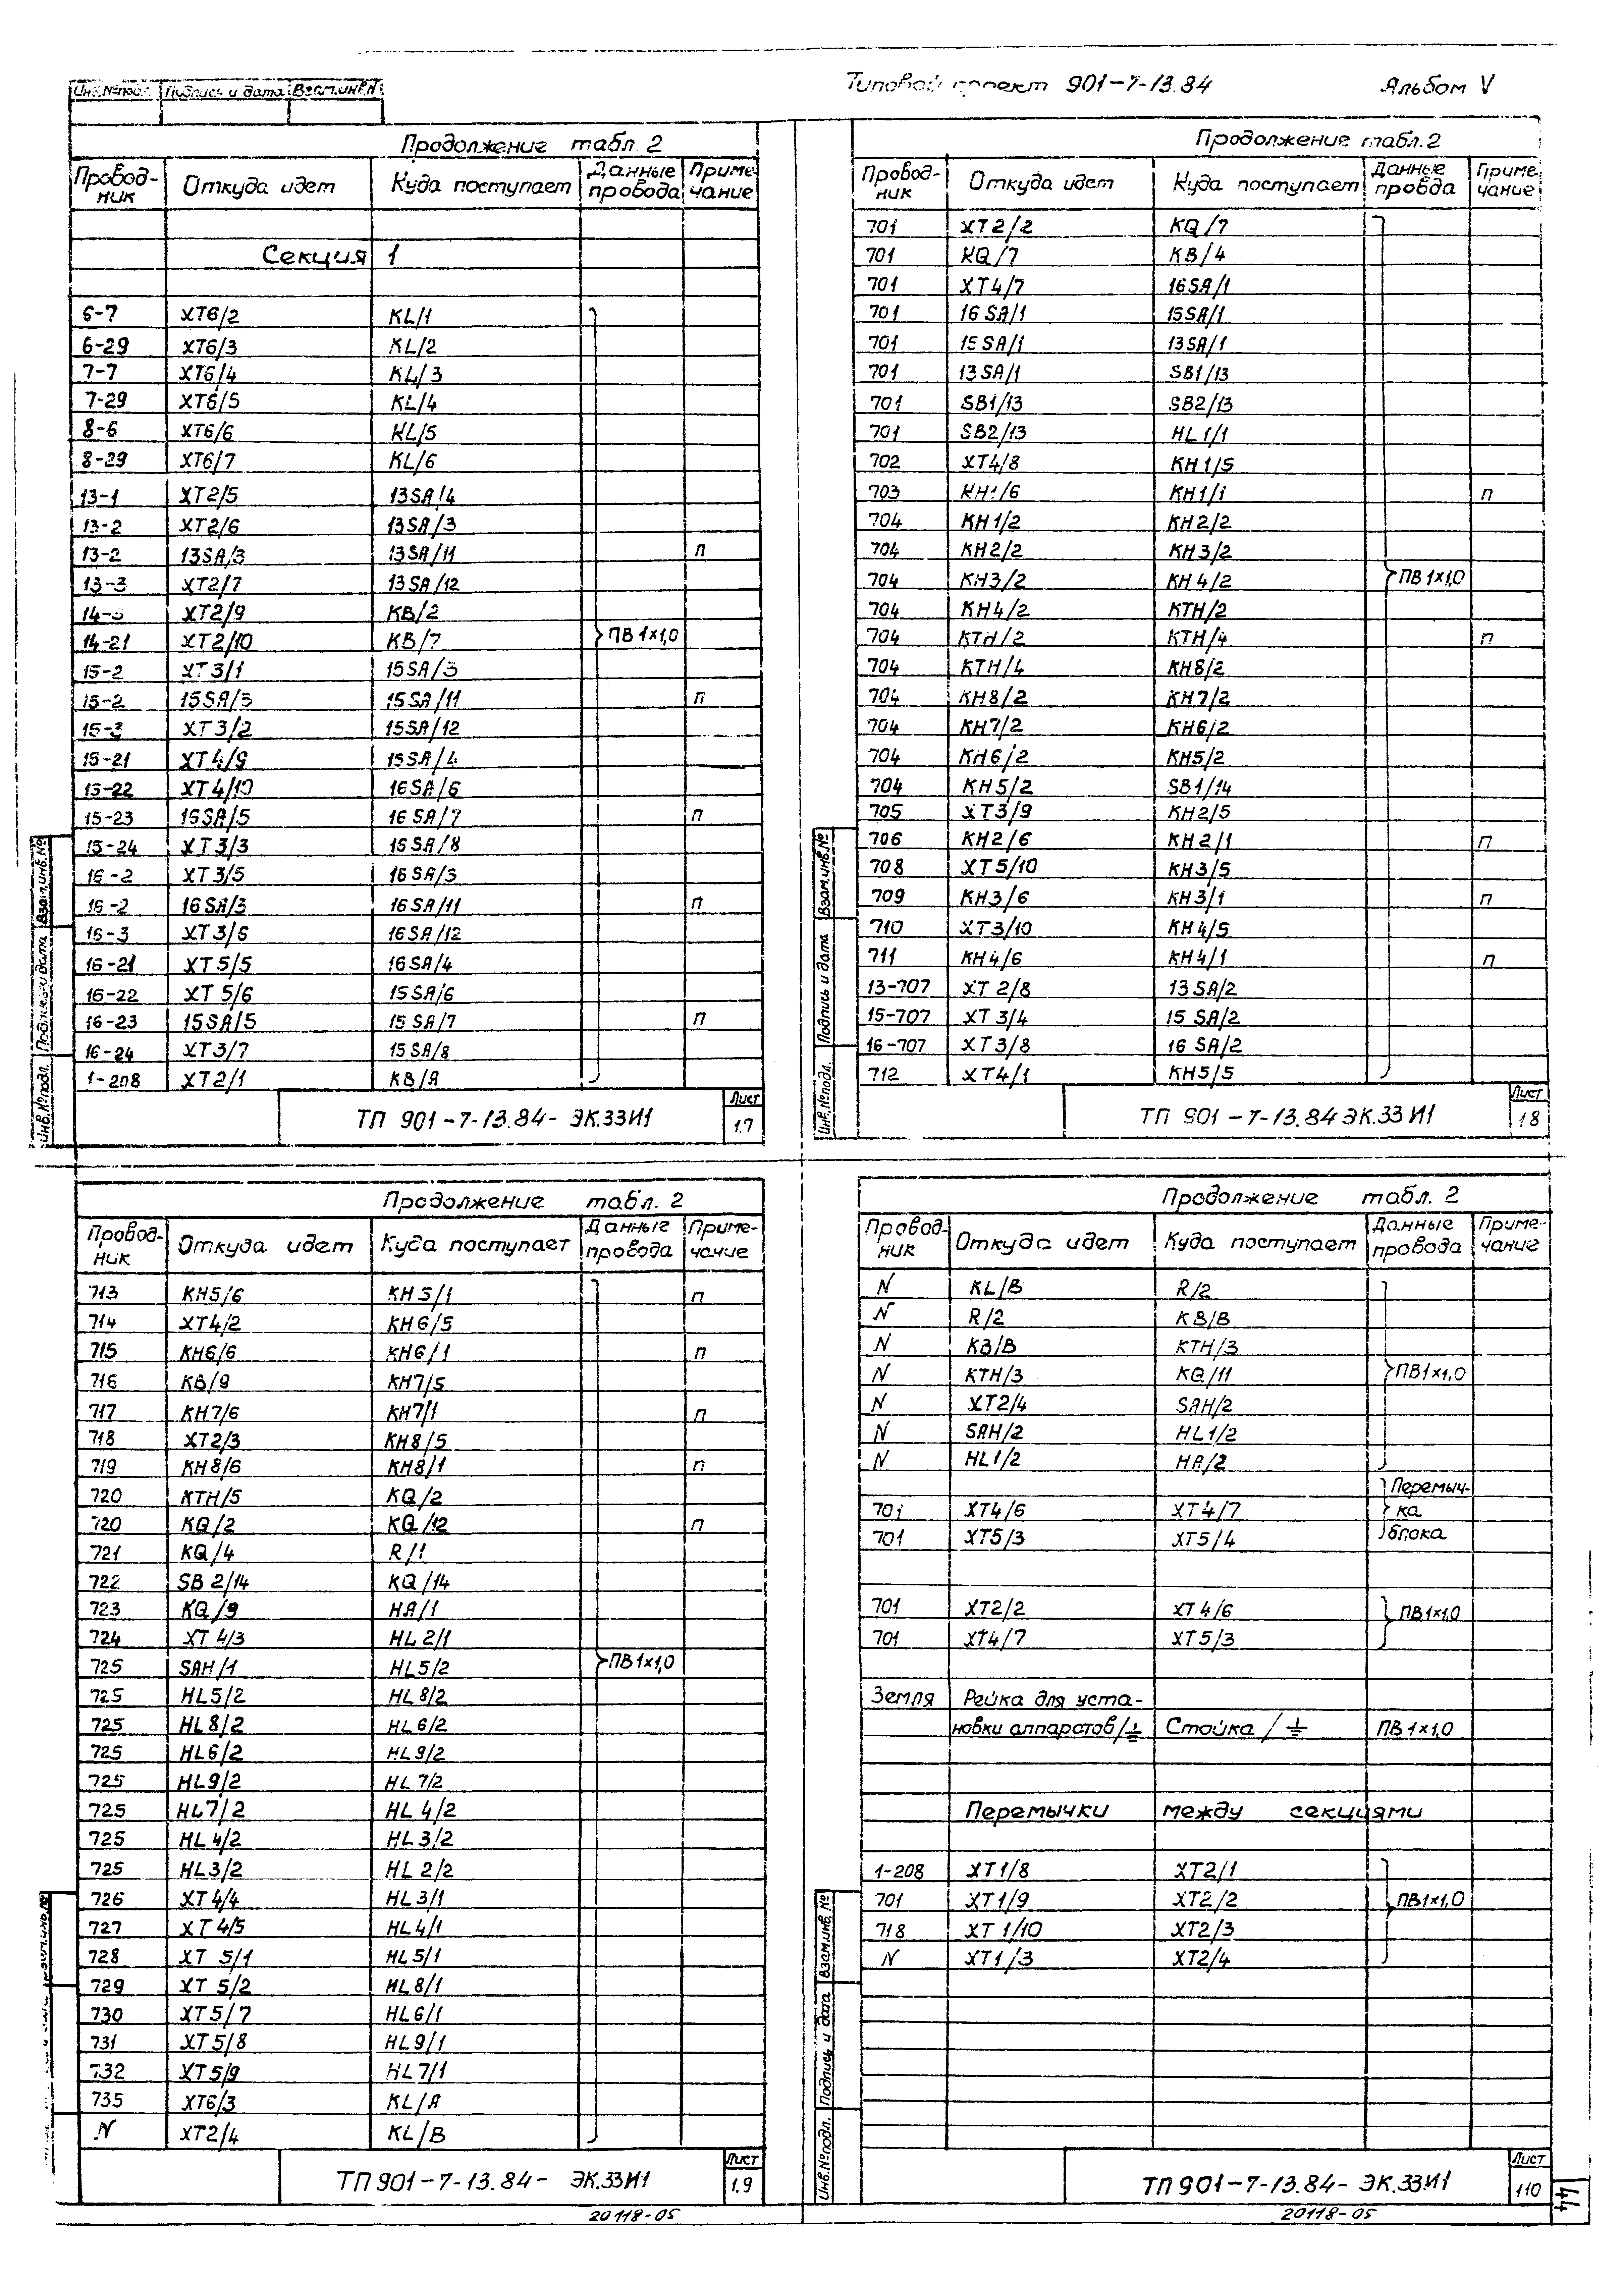 Инв.№подл. Подпись и дата Взам.инв.№
Типовой проект 901-7-13.84 Альбом V
Продолжение табл 2
Провод-ник Откуда идет Куда поступает Данные провода Приме-чание
Секция 1
6-7 XT6/2 KL/1
6-29 XT6/3 KL/2
7-7 XT6/4 KL/3
7-29 XT6/5 KL/4
8-6 XT6/6 KL/5
8-29 XT6/7 KL/6
13-1 XT2/5 13SA/4
13-2 XT2/6 13SA/3
13-2 13SA/3 13SA/11 п
13-3 XT2/7 13SA/12
14-3 XT2/9 KB/2
14-21 XT2/10 KB/7 ПВ 1×1,0
15-2 XT3/1 15SA/3
15-2 15SA/3 15SA/11 п
15-3 XT3/2 15SA/12
15-21 XT4/9 15SA/4
15-22 XT4/10 16SA/6
15-23 16SA/5 16SA/7 п
15-24 XT3/3 16SA/8
16-2 XT3/5 16SA/3
16-2 16SA/3 16SA/11 п
16-3 XT3/6 16SA/12
16-21 XT5/5 16SA/4
16-22 XT5/6 15SA/6
16-23 15SA/5 15SA/7 п
16-24 XT3/7 15SA/8
1-208 XT2/1 KB/A
ТП 901-7-13.84- ЭК.33И1 Лист 1.7
Инв.№подл. Подпись и дата Взам.инв.№
Продолжение табл.2
Провод-ник Откуда идет Куда поступает Данные провда Приме-чание
701 XT2/2 KQ/7
701 KQ/7 KB/4
701 XT4/7 16SA/1
701 16SA/1 15SA/1
701 15SA/1 13SA/1
701 13SA/1 SB1/13
701 SB1/13 SB2/13
701 SB2/13 HL1/1
702 XT4/8 KH1/5
703 KH1/6 KH1/1 п
704 KH1/2 KH2/2
704 KH2/2 KH3/2
704 KH3/2 KH4/2 ПВ 1×1,0
704 KH4/2 KTH/2
704 KTH/2 KTH/4 п
704 KTH/4 KH8/2
704 KH8/2 KH7/2
704 KH7/2 KH6/2
704 KH6/2 KH5/2
704 KH5/2 SB1/14
705 XT3/9 KH2/5
706 KH2/6 KH2/1 п
708 XT5/10 KH3/5
709 KH3/6 KH3/1 п
710 XT3/10 KH4/5
711 KH4/6 KH4/1 п
13-707 XT2/8 13SA/2
15-707 XT3/4 15SA/2
16-707 XT3/8 16SA/2
712 XT4/1 KH5/5
ТП 901-7-13.84 ЭК.33И1 Лист 1.8
Инв.№подл. Подпись и дата Взам.инв.№
Продолжение табл. 2
Провод-ник Откуда идет Куда поступает Данные провода Приме-чание
713 KH5/6 KH5/1 п
714 XT4/2 KH6/5
715 KH6/6 KH6/1 п
716 KB/9 KH7/5
717 KH7/6 KH7/1 п
718 XT2/3 KH8/5
719 KH8/6 KH8/1 п
720 KTH/5 KQ/2
720 KQ/2 KQ/12 п
721 KQ/4 R/1
722 SB2/14 KQ/14
723 KQ/9 HA/1
724 XT4/3 HL2/1
725 SAH/1 HL5/2 ПВ 1×1,0
725 HL5/2 HL8/2
725 HL8/2 HL6/2
725 HL6/2 HL9/2
725 HL9/2 HL7/2
725 HL7/2 HL4/2
725 HL4/2 HL3/2
725 HL3/2 HL2/2
726 XT4/4 HL3/1
727 XT4/5 HL4/1
728 XT5/1 HL5/1
729 XT5/2 HL8/1
730 XT5/7 HL6/1
731 XT5/8 HL9/1
732 XT5/9 HL7/1
735 XT6/3 KL/A
N XT2/4 KL/B
ТП 901-7-13.84- ЭК.33И1 Лист 1.9
20118-05
Продолжение табл. 2
Провод-ник Откуда идет Куда поступает Данные провода Приме-чание
N KL/B R/2
N R/2 KB/B
N KB/B KTH/3
N KTH/3 KQ/11 ПВ 1×1,0
N XT2/4 SAH/2
N SAH/2 HL1/2
N HL1/2 HA/2
Перемыч-
701 XT4/6 XT4/7 ка
701 XT5/3 XT5/4 блока
701 XT2/2 XT4/6 ПВ 1×1,0
701 XT4/7 XT5/3
Земля Рейка для уста-
новки аппаратов/⏚ Стойка/⏚ ПВ 1×1,0
Перемычки между секциями
1-208 XT1/8 XT2/1
701 XT1/9 XT2/2 ПВ 1×1,0
718 XT1/10 XT2/3
N XT1/3 XT2/4
Инв.№подл. Подпись и дата Взам.инв.№
ТП 901-7-13.84- ЭК.33И1 Лист 1.10
20118-05
44